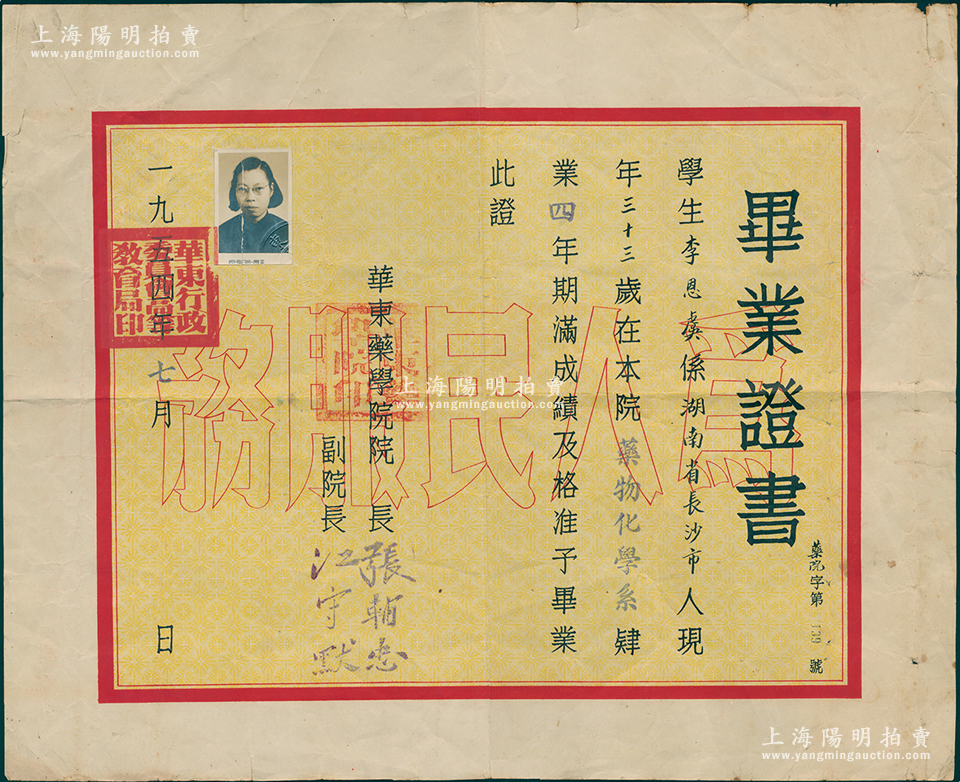 上海陽明拍賣
www.yangmingauction.com
畢業證書
藥院字第139號
學生李恩虞係湖南省長沙市人現
年三十三歲在本院藥物化學系肄
業四年期滿成績及格准予畢業
此證
華東藥學院院長張輔忠
副院長江守默
一九五四年七月 日
華東行政
委員會高等
教育局印
為人民服務
上海陽明拍賣
www.yangmingauction.com
上海陽明拍賣
www.yangmingauction.com